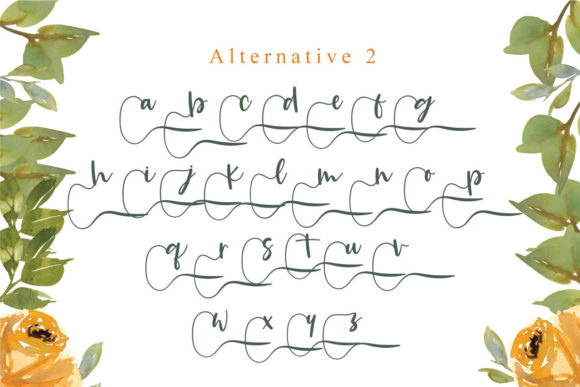 Alternative 2
a b c d e f g
h i j k l m n o p
q r s t u v
w x y z